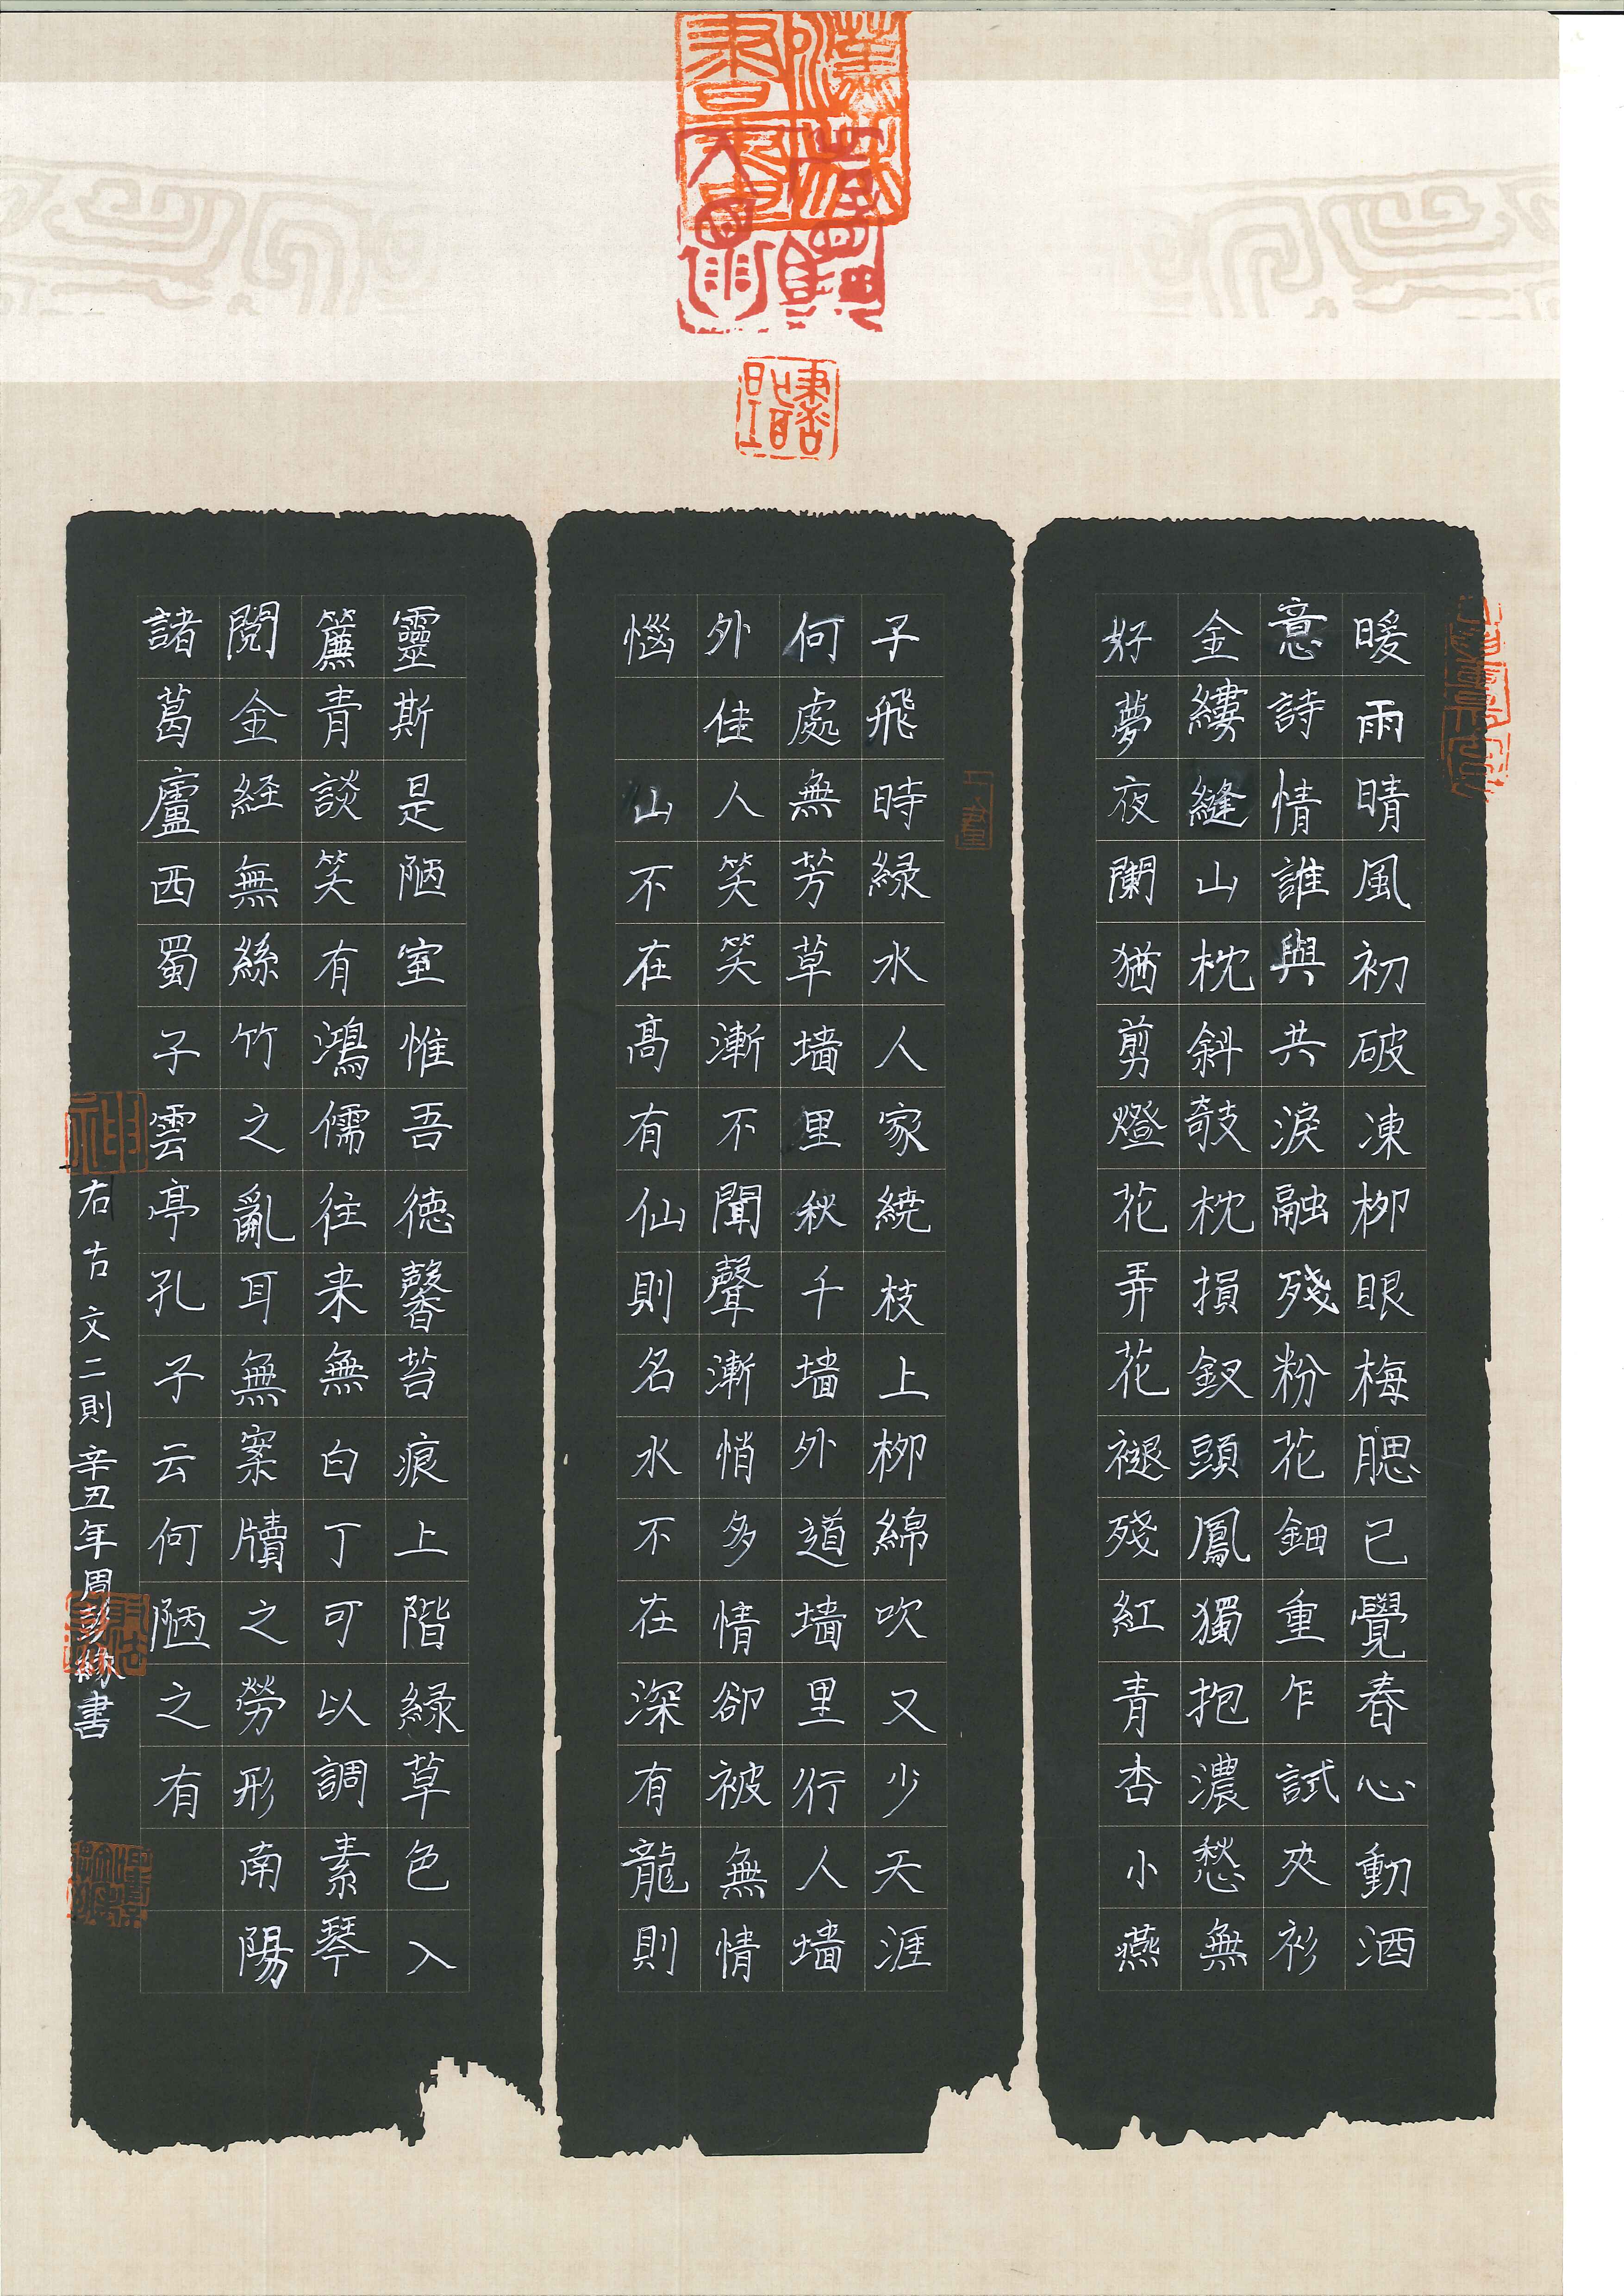 暖雨晴風初破凍柳眼梅腮已覺春心動酒
意詩情誰與共淚融殘粉花鈿重乍試夾衫
金縷縫山枕斜敧枕損釵頭鳳獨抱濃愁無
好夢夜闌猶剪燈花弄花褪殘紅青杏小燕
子飛時緑水人家繞枝上柳綿吹又少天涯
何處無芳草墙里秋千墙外道墙里行人墙
外佳人笑笑漸不聞聲漸悄多情卻被無情
惱 山不在高有仙則名水不在深有龍則
靈斯是陋室惟吾德馨苔痕上階緑草色入
簾青談笑有鴻儒往来無白丁可以調素琴
閱金経無絲竹之亂耳無案牘之勞形南陽
諸葛廬西蜀子雲亭孔子云何陋之有
右古文二則辛丑年周彭緣書